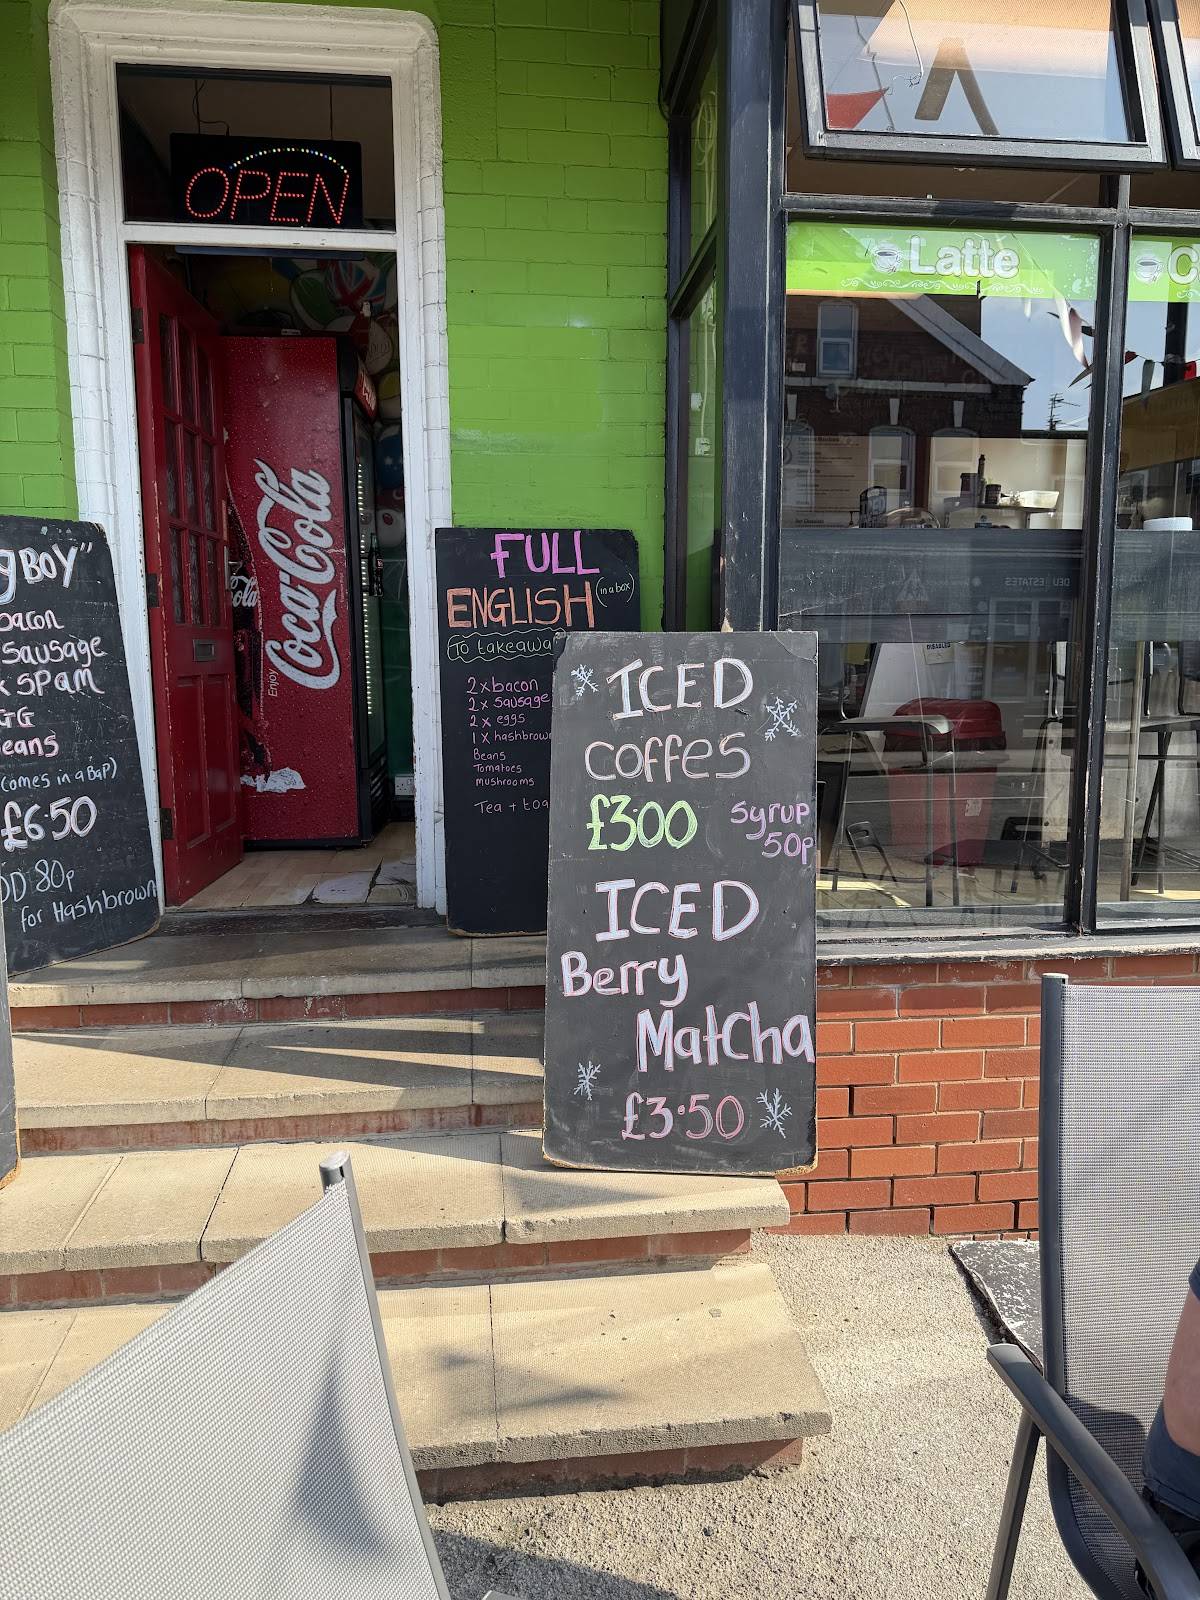 OPEN
Latte
Enjoy
Coca-Cola
BOY"
bacon
Sausage
x SPam
GG
eans
(comes in a BaP)
£6.50
DD 80p
for Hashbrown
FULL
ENGLISH (in a box)
To takeawa
2 x bacon
2 x sausage
2 x eggs
1 X hashbrow
Beans
Tomatoes
mushrooms
Tea + toa
ICED
coffes
£3.00
Syrup
50p
ICED
Berry
Matcha
£3.50
ESTATES
DISABLED